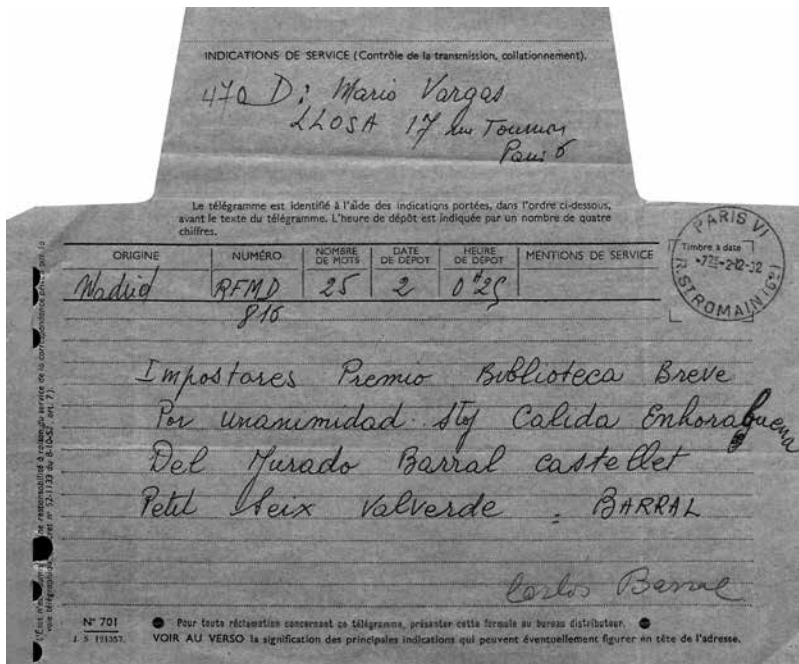 INDICATIONS DE SERVICE (Contrôle de la transmission, collationnement).
470 D: Mario Vargas
LLOSA 17 rue Tournon
Paris 6
Le télégramme est identifié à l'aide des indications portées, dans l'ordre ci-dessous,
avant le texte du télégramme. L'heure de dépôt est indiquée par un nombre de quatre
chiffres.
PARIS VI
Timbre à date
R. ST ROMAIN (6e)
ORIGINE NUMÉRO NOMBRE DE MOTS DATE DE DÉPOT HEURE DE DÉPOT MENTIONS DE SERVICE
Madrid RFMD 25 2 0H25
816
Impostares Premio Biblioteca Breve
Por unanimidad. Stop Calida Enhorabuena
Del Jurado Barral Castellet
Petit Seix Valverde = BARRAL
Carlos Barral
N° 701
J. S. 191357.
Pour toute réclamation concernant ce télégramme, présenter cette formule au bureau distributeur.
VOIR AU VERSO la signification des principales indications qui peuvent éventuellement figurer en tête de l'adresse.